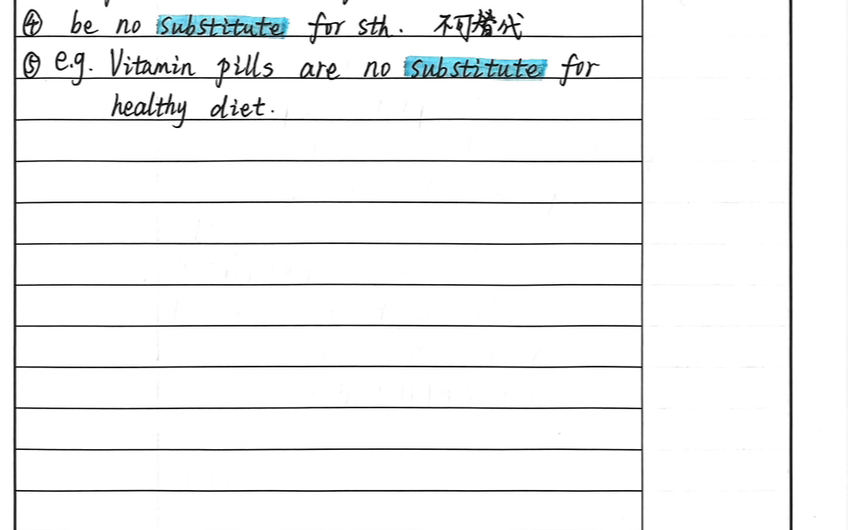 ④ be no substitute for sth. 不可替代
⑤ e.g. Vitamin pills are no substitute for
healthy diet.